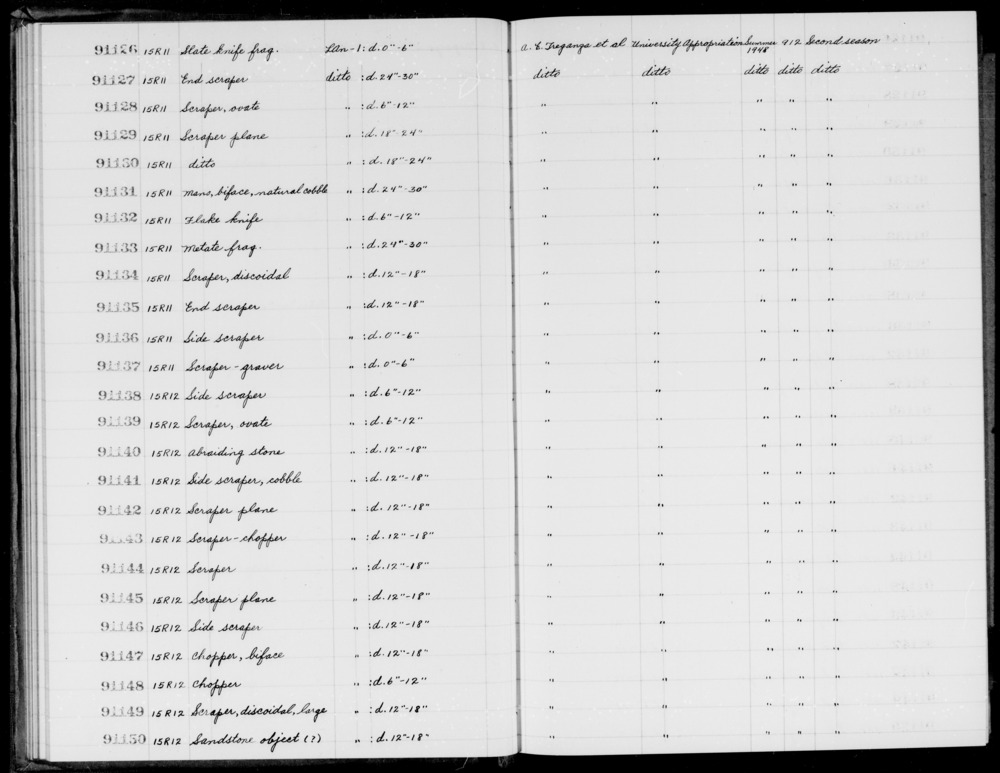 91126 15R11 Slate knife frag. LAn-1: d. 0"-6" A. E. Treganza et al University Appropriation Summer 1948 912 Second season
91127 15R11 End scraper ditto : d. 24"-30" ditto ditto ditto ditto ditto
91128 15R11 Scraper, ovate " : d. 6"-12" " " " " "
91129 15R11 Scraper plane " : d. 18"-24" " " " " "
91130 15R11 ditto " : d. 18"-24" " " " " "
91131 15R11 Mano, biface, natural cobble " : d. 24"-30" " " " " "
91132 15R11 Flake knife " : d. 6"-12" " " " " "
91133 15R11 Metate frag. " : d. 24"-30" " " " " "
91134 15R11 Scraper, discoidal " : d. 12"-18" " " " " "
91135 15R11 End scraper " : d. 12"-18" " " " " "
91136 15R11 Side scraper " : d. 0"-6" " " " " "
91137 15R11 Scraper-graver " : d. 0"-6" " " " " "
91138 15R12 Side scraper " : d. 6"-12" " " " " "
91139 15R12 Scraper, ovate " : d. 6"-12" " " " " "
91140 15R12 Abraiding stone " : d. 12"-18" " " " " "
91141 15R12 Side scraper, cobble " : d. 12"-18" " " " " "
91142 15R12 Scraper plane " : d. 12"-18" " " " " "
91143 15R12 Scraper-chopper " : d. 12"-18" " " " " "
91144 15R12 Scraper " : d. 12"-18" " " " " "
91145 15R12 Scraper plane " : d. 12"-18" " " " " "
91146 15R12 Side scraper " : d. 12"-18" " " " " "
91147 15R12 Chopper, biface " : d. 12"-18" " " " " "
91148 15R12 Chopper " : d. 6"-12" " " " " "
91149 15R12 Scraper, discoidal, large " : d. 12"-18" " " " " "
91150 15R12 Sandstone object (?) " : d. 12"-18" " " " " "